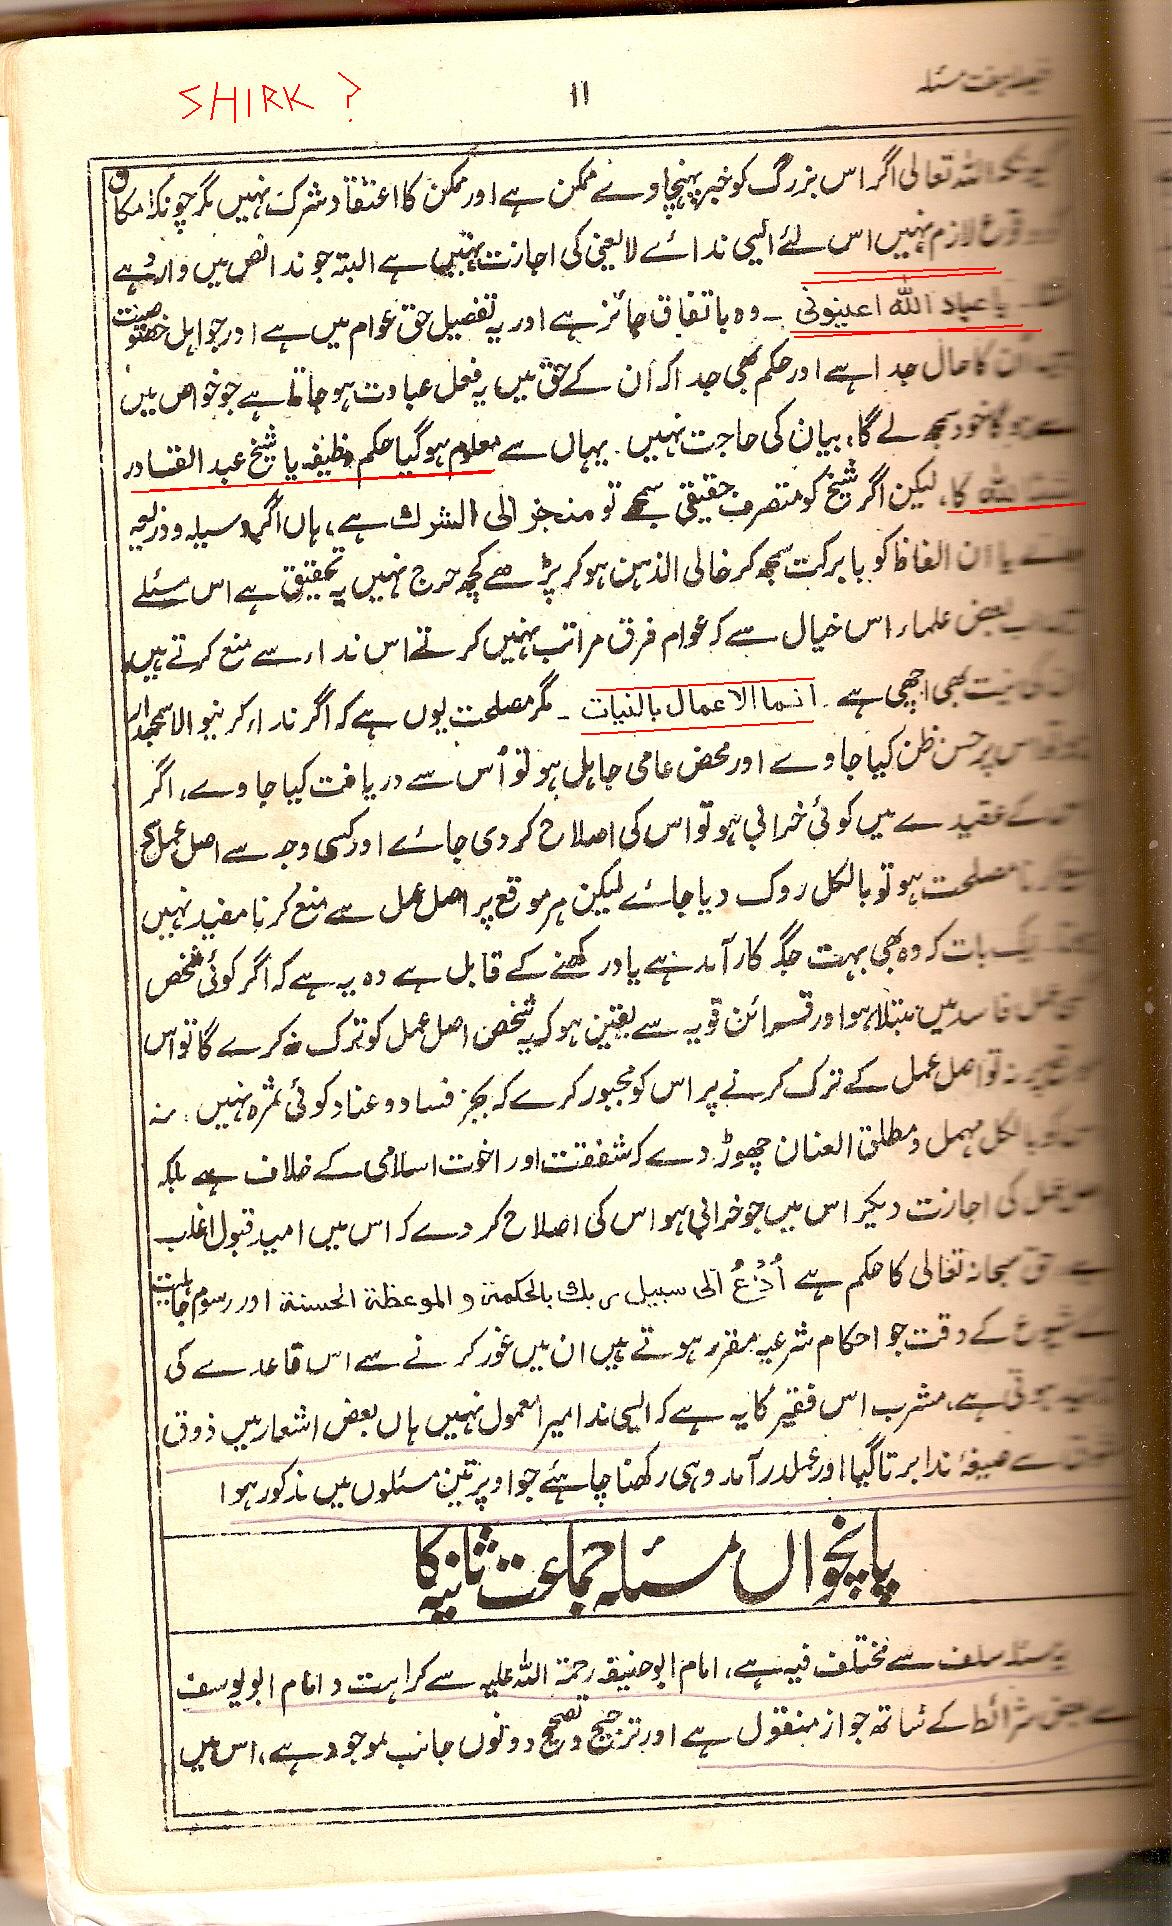 فیصلہ ہفت مسئلہ
۱۱
SHIRK ?
کیونکہ اللہ تعالی اگر اس بزرگ کو خبر پہنچاوے ممکن ہے اور ممکن کا اعتقاد شرک نہیں مگر چونکہ امکان
کو وقوع لازم نہیں اس لئے ایسی ندائے لایعنی کی اجازت نہیں ہے البتہ جو ندا نص میں وارد ہے
یا عباد اللہ اعینونی ۔ وہ باتفاق جائز ہے اور یہ تفصیل حق عوام میں ہے اور جو اہل خصوصیت
ان کا حال جدا ہے اور حکم بھی جدا کہ ان کے حق میں یہ فعل عبادت ہو جاتا ہے جو خواص میں
سے ہوگا خود سمجھ لے گا، بیان کی حاجت نہیں ۔ یہاں سے معلوم ہو گیا حکم وظیفہ یا شیخ عبد القادر
شیئا للہ کا، لیکن اگر شیخ کو متصرف حقیقی سمجھے تو منجر الی الشرک ہے، ہاں اگر وسیلہ و ذریعہ
جانے یا ان الفاظ کو بابرکت سمجھ کر خالی الذہن ہو کر پڑھے کچھ حرج نہیں یہ تحقیق ہے اس مسئلے
بعض علماء اس خیال سے کہ عوام فرق مراتب نہیں کرتے اس نداء سے منع کرتے ہیں،
ان کی نیت بھی اچھی ہے ۔ انما الاعمال بالنیات ۔ مگر مصلحت یوں ہے کہ اگر نداء کرنیوالا سمجھدار
ہو تو اس پر حسن ظن کیا جاوے اور محض عامی جاہل ہو تو اس سے دریافت کیا جاوے، اگر
اس کے عقیدے میں کوئی خرابی ہو تو اس کی اصلاح کر دی جائے اور کسی وجہ سے اصل عمل سے
منع کرنا مصلحت ہو تو بالکل روک دیا جائے لیکن ہر موقع پر اصل عمل سے منع کرنا مفید نہیں
ایک بات کہ وہ بھی بہت جگہ کارآمد ہے یاد رکھنے کے قابل ہے وہ یہ ہے کہ اگر کوئی شخص
کسی عمل فاسد میں مبتلا ہو اور قرائن قویہ سے یقین ہو کہ یہ شخص اصل عمل کو ترک نہ کرے گا تو اس
موقع پر نہ تو اصل عمل کے ترک کرنے پر اس کو مجبور کرے کہ بجز فساد و عناد کوئی ثمرہ نہیں، نہ
اس کو بالکل مہمل و مطلق العنان چھوڑ دے کہ شفقت اور اخوت اسلامی کے خلاف ہے بلکہ
اصل عمل کی اجازت دیکر اس میں جو خرابی ہو اس کی اصلاح کر دے کہ اس میں امید قبول اغلب
ہے، حق سبحانہ تعالی کا حکم ہے اُدْعُ الی سبیل ربک بالحکمة و الموعظة الحسنة اور رسوم جاہلیت
کے شیوع کے وقت جو احکام شرعیہ مقرر ہوتے ہیں ان میں غور کرنے سے اس قاعدے کی
تائید ہوتی ہے، مشرب اس فقیر کا یہ ہے کہ ایسی ندا میرا معمول نہیں ہاں بعض اشعار میں ذوق
شوق سے صیغۂ ندا برتا گیا اور عملدرآمد وہی رکھنا چاہئے جو اوپر تین مسئلوں میں مذکور ہوا
پانچواں مسئلہ جماعت ثانیہ کا
یہ مسئلہ سلف سے مختلف فیہ ہے، امام ابوحنیفہ رحمۃ اللہ علیہ سے کراہت و امام ابو یوسف
سے بعض شرائط کے ساتھ جواز منقول ہے اور ترجیح و تصحیح دونوں جانب موجود ہے، اس میں